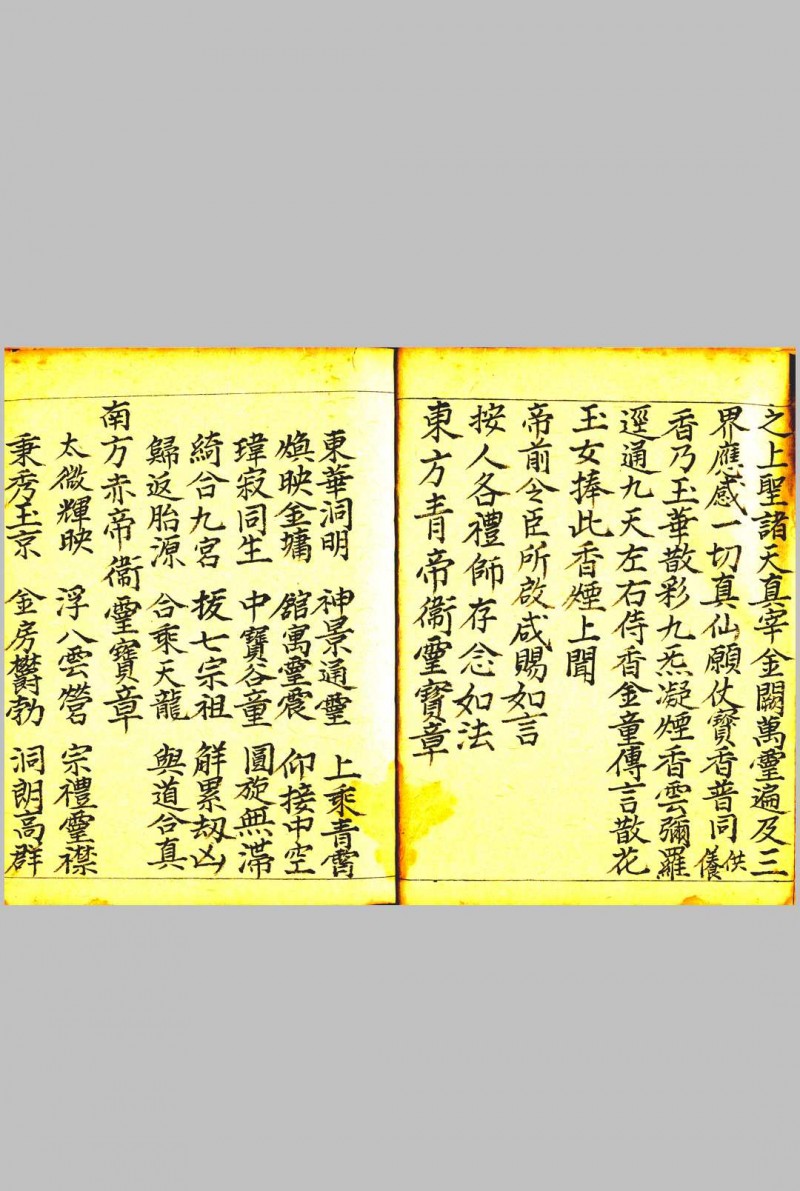 之上聖諸天真宰金闕萬靈遍及三
界應感一切真仙願仗寶香普同供養
香乃玉華散彩九炁凝煙香雲彌羅
逕通九天左右侍香金童傳言散花
玉女捧此香煙上聞
帝前令臣所啟咸賜如言
按人各禮師存念如法
東方青帝衛靈寶章
東華洞明 神景通靈 上乘青霄
煥映金墉 館寓靈震 仰接中空
瑋寂同生 中寶谷童 圓旋無滯
綺合九宮 拔七宗祖 解累劫凶
歸返胎源 合乘天龍 與道合真
南方赤帝衛靈寶章
太微輝映 浮八雲營 宗禮靈襟
秉秀玉京 金房欝勃 洞朗高群